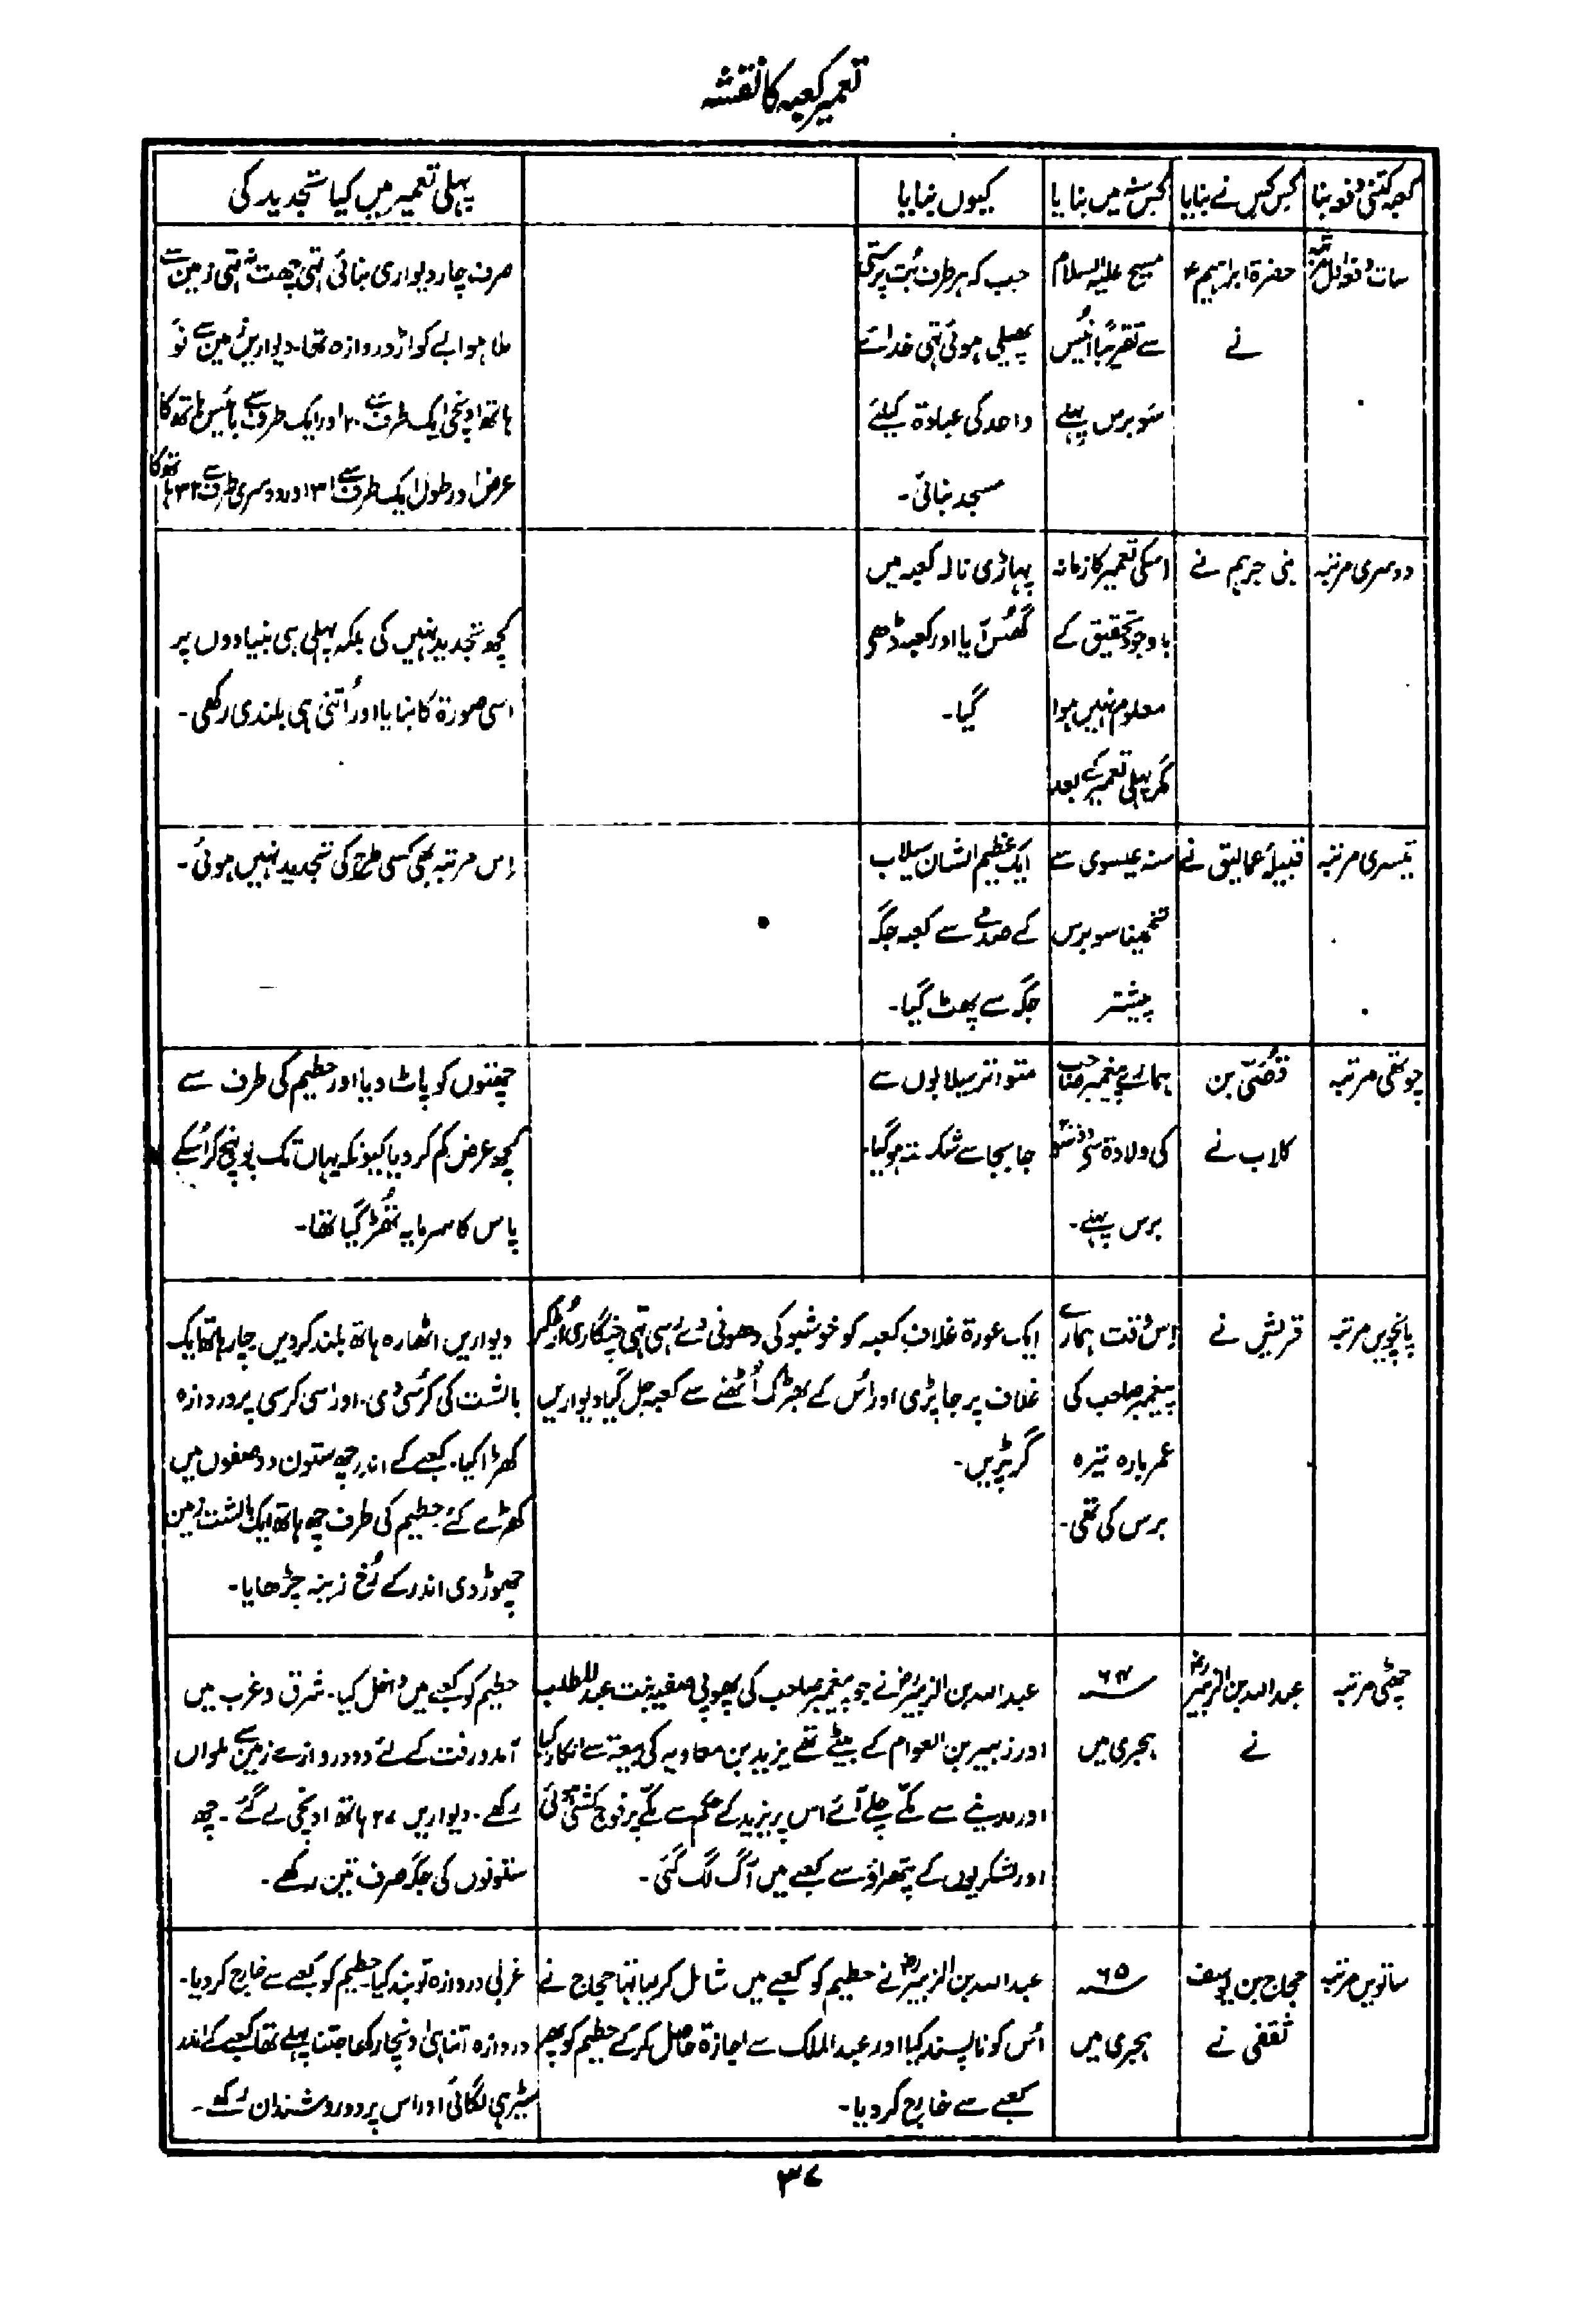 تعمیر کعبہ کا نقشہ
کعبہ کتنی دفعہ بنا
کس کس نے بنایا
کس سنہ میں بنایا
کیوں بنایا
پہلی تعمیر میں کیا تجدید کی
سات دفعہ اول مرتبہ
حضرۃ ابراہیمؑ
نے
مسیح علیہ السلام
سے تقریباً انیس
سَو برس پہلے
جب کہ ہر طرف بُت پرستی
پھیلی ہوئی تہی خدائے
واحد کی عبادۃ کیلئے
مسجد بنائی۔
صرف چار دیواری بنائی تہی چھت نہ تہی زمین سے
ملا ہوا بے کواڑ دروازہ تھا۔ دیواریں زمین سے نَو
ہاتھ اونچی ایک طرف سے ۲۰ اور ایک طرف سے بائیس ہاتھ کا
عرض اور طول ایک طرف سے ۳۱ اور دوسری طرف سے ۳۲ ہاتھ کا
دوسری مرتبہ
بنی جرہم نے
اسکی تعمیر کا زمانہ
باوجود تحقیق کے
معلوم نہیں ہوا
مگر پہلی تعمیر کے بعد
پہاڑی نالہ کعبہ میں
گھُس آیا اور کعبہ ڈھے
گیا۔
کچھ تجدید نہیں کی بلکہ پہلی ہی بنیادوں پر
اسی صورۃ کا بنایا اور اُتنی ہی بلندی رکھی۔
تیسری مرتبہ
قبیلۂ عمالیق نے
سنہ عیسوی سے
تخمیناً سو برس
پیشتر
ایک عظیم الشان سیلاب
کے صدمے سے کعبہ جگہ
جگہ سے پھٹ گیا۔
اِس مرتبہ بھی کسی طرح کی تجدید نہیں ہوئی۔
چوتھی مرتبہ
قُصَیّ بن
کلاب نے
ہمارے پیغمبر صاحب
کی ولادۃ سے دو سَو
برس پہلے۔
متواتر سیلابوں سے
جا بجا سے شکستہ ہوگیا۔
چھتوں کو پاٹ دیا اور حطیم کی طرف سے
کچھ عرض کم کر دیا کیونکہ یہاں تک پہونچ کر اُسکے
پاس کا سرمایہ تھُڑ گیا تھا۔
پانچویں مرتبہ
قریش نے
اِس وقت ہمارے
پیغمبر صاحب کی
عمر بارہ تیرہ
برس کی تھی۔
ایک عورۃ غلاف کعبہ کو خوشبو کی دھونی دے رہی تہی چنگاری اُڑ کر
غلاف پر جا پڑی اور اُس کے بھڑک اُٹھنے سے کعبہ جل گیا دیواریں
گر پڑیں۔
دیواریں اٹھارہ ہاتھ بلند کر دیں۔ چار ہاتھ ایک
بالشت کی کُرسی دی۔ اور اسی کرسی پر دروازہ
کھڑا کیا۔ کعبے کے اندر چھ ستون دو صفوں میں
کھڑے کئے۔ حطیم کی طرف چھ ہاتھ ایک بالشت زمین
چھوڑ دی اندر کے رُخ زینہ چڑھایا۔
چھٹی مرتبہ
عبد اللہ بن الزبیرؓ
نے
۶۴ سنہ
ہجری میں
عبد اللہ بن الزبیرؓ نے جو پیغمبر صاحب کی پھوپی صفیہ بنت عبد المطلب
اور زبیر بن العوام کے بیٹے تھے یزید بن معاویہ کی بیعۃ سے انکار کیا
اور مدینے سے مکے چلے آئے اس پر یزید کے حکم سے مکے پر فوج کشی ہوئی
اور لشکریوں کے پتھراؤ سے کعبے میں آگ لگ گئی۔
حطیم کو کعبے میں داخل کیا۔ شرق و غرب میں
آمد و رفت کے لئے دو دروازے زمین سے ملواں
رکھے۔ دیواریں ۲۷ ہاتھ اونچی لے گئے۔ چھ
ستونوں کی جگہ صرف تین رکھے۔
ساتویں مرتبہ
حجاج بن یوسف
ثقفی نے
۶۵ سنہ
ہجری میں
عبد اللہ بن الزبیرؓ نے حطیم کو کعبے میں شامل کر لیا تہا حجاج نے
اُس کو ناپسند کیا اور عبد الملک سے اجازۃ حاصل کرکے حطیم کو پھر
کعبے سے خارج کر دیا۔
غربی دروازہ تو بند کیا۔ حطیم کو کعبے سے خارج کر دیا۔
دروازہ اتنا ہی اونچا رکھا جتنا پہلے تھا۔ کعبے کے اندر
سیڑہی لگائی اور اس پر دو روشندان رکھے۔
۳۷